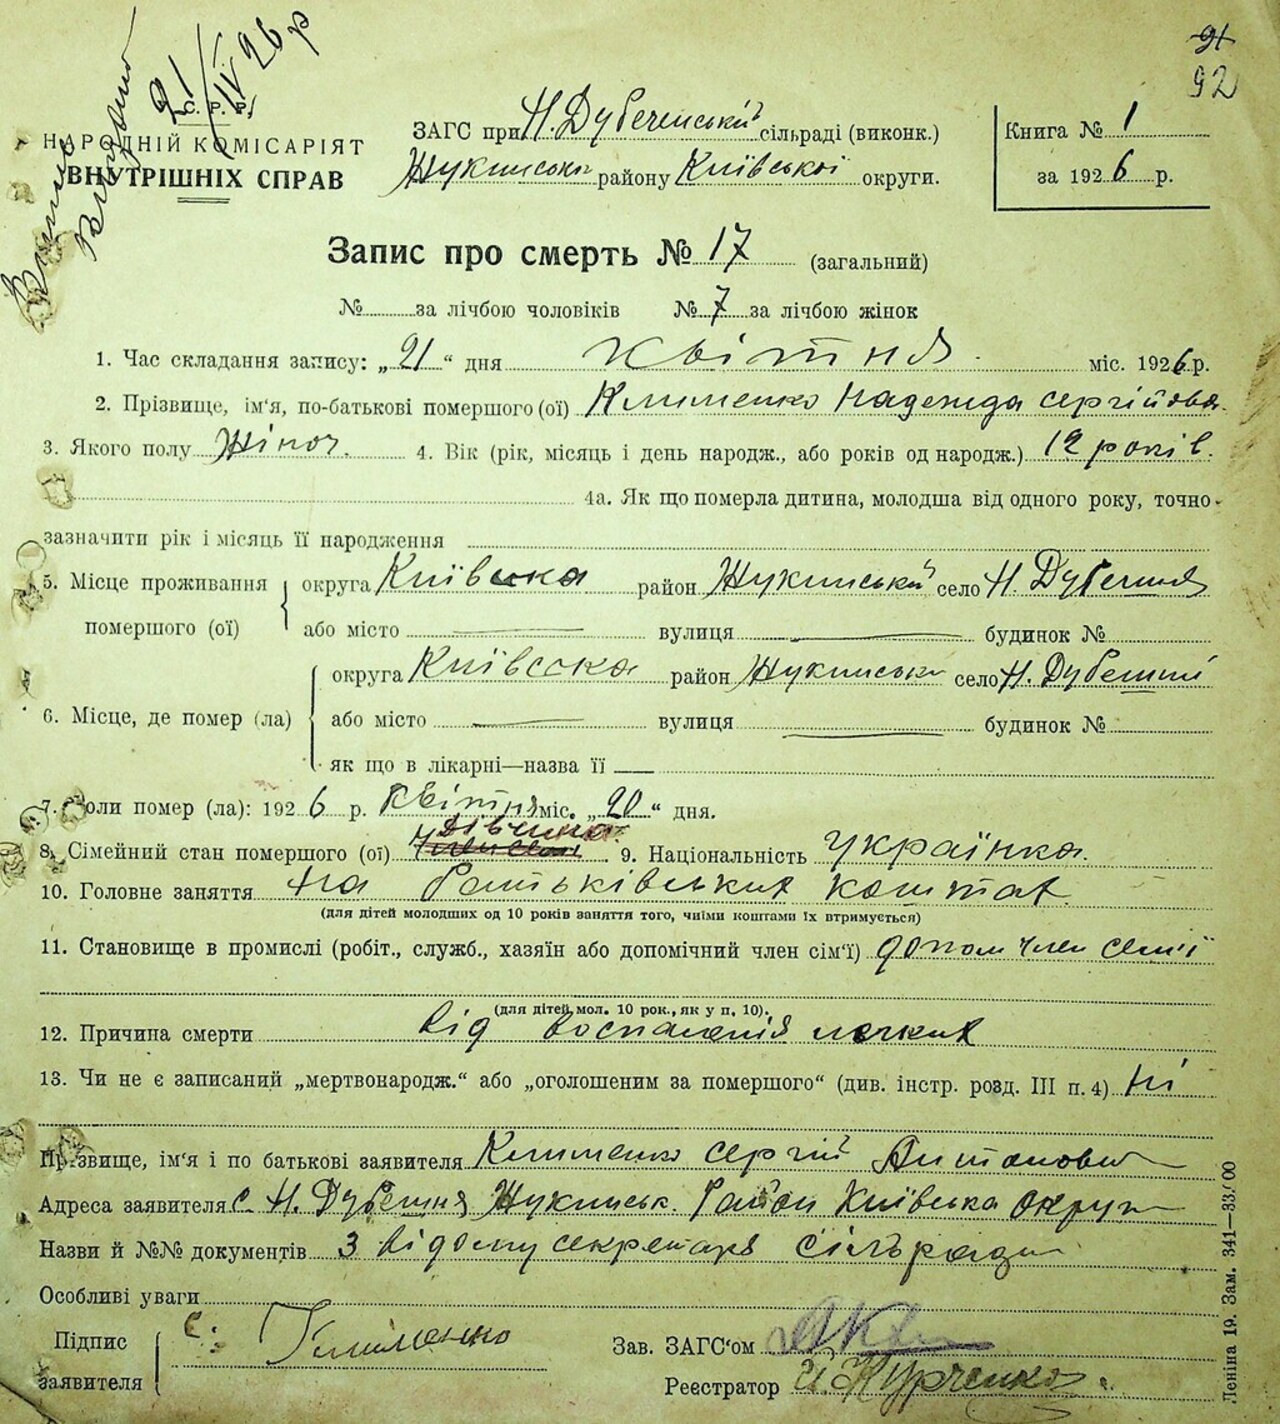 91
92
21/IV 26 р
С. Р. Р.
НАРОДНІЙ КОМІСАРІЯТ
ВНУТРІШНІХ СПРАВ
ЗАГС при Н. Дубеченській сільраді (виконк.)
Жукинськ району Київської округи.
Книга № 1
за 1926 р.
Запис про смерть № 17 (загальний)
№ за лічбою чоловіків № 7 за лічбою жінок
1. Час складання запису: „21“ дня квітня міс. 1926 р.
2. Прізвище, ім'я, по-батькові помершого (ої) Клименко Надежда Сергійовна
3. Якого полу Жіноч. 4. Вік (рік, місяць і день народж., або років од народж.) 12 років.
4а. Як що померла дитина, молодша від одного року, точно
зазначити рік і місяць її народження
5. Місце проживання помершого (ої) округа Київська район Жукинській село Н. Дубечня
або місто вулиця будинок №
6. Місце, де помер (ла) округа Київська район Жукинськ село Н. Дубечні
або місто вулиця будинок №
як що в лікарні—назва її
7. Коли помер (ла): 1926 р. Квітня міс. „20“ дня.
8. Сімейний стан помершого (ої) дівчина 9. Національність українка.
10. Головне заняття на батьківських коштах
(для дітей молодших од 10 років заняття того, чиїми коштами їх втримується)
11. Становище в промислі (робіт., служб., хазяїн або допомічний член сім'ї) допом член семі
(для дітей мол. 10 рок., як у п. 10).
12. Причина смерти від воспаленія легких
13. Чи не є записаний „мертвонародж.“ або „оголошеним за помершого“ (див. інстр. розд. III п. 4) ні
Прізвище, ім'я і по батькові заявителя Клименко Сергій Антонович
Адреса заявителя с. Н. Дубечня Жукинськ. район Київська округ
Назви й №№ документів З відому секретаря сільради
Особливі уваги
Підпис заявителя С. Клименко
Зав. ЗАГС'ом
Реєстратор Курченко
Леніна 19. Зам. 341—33/00